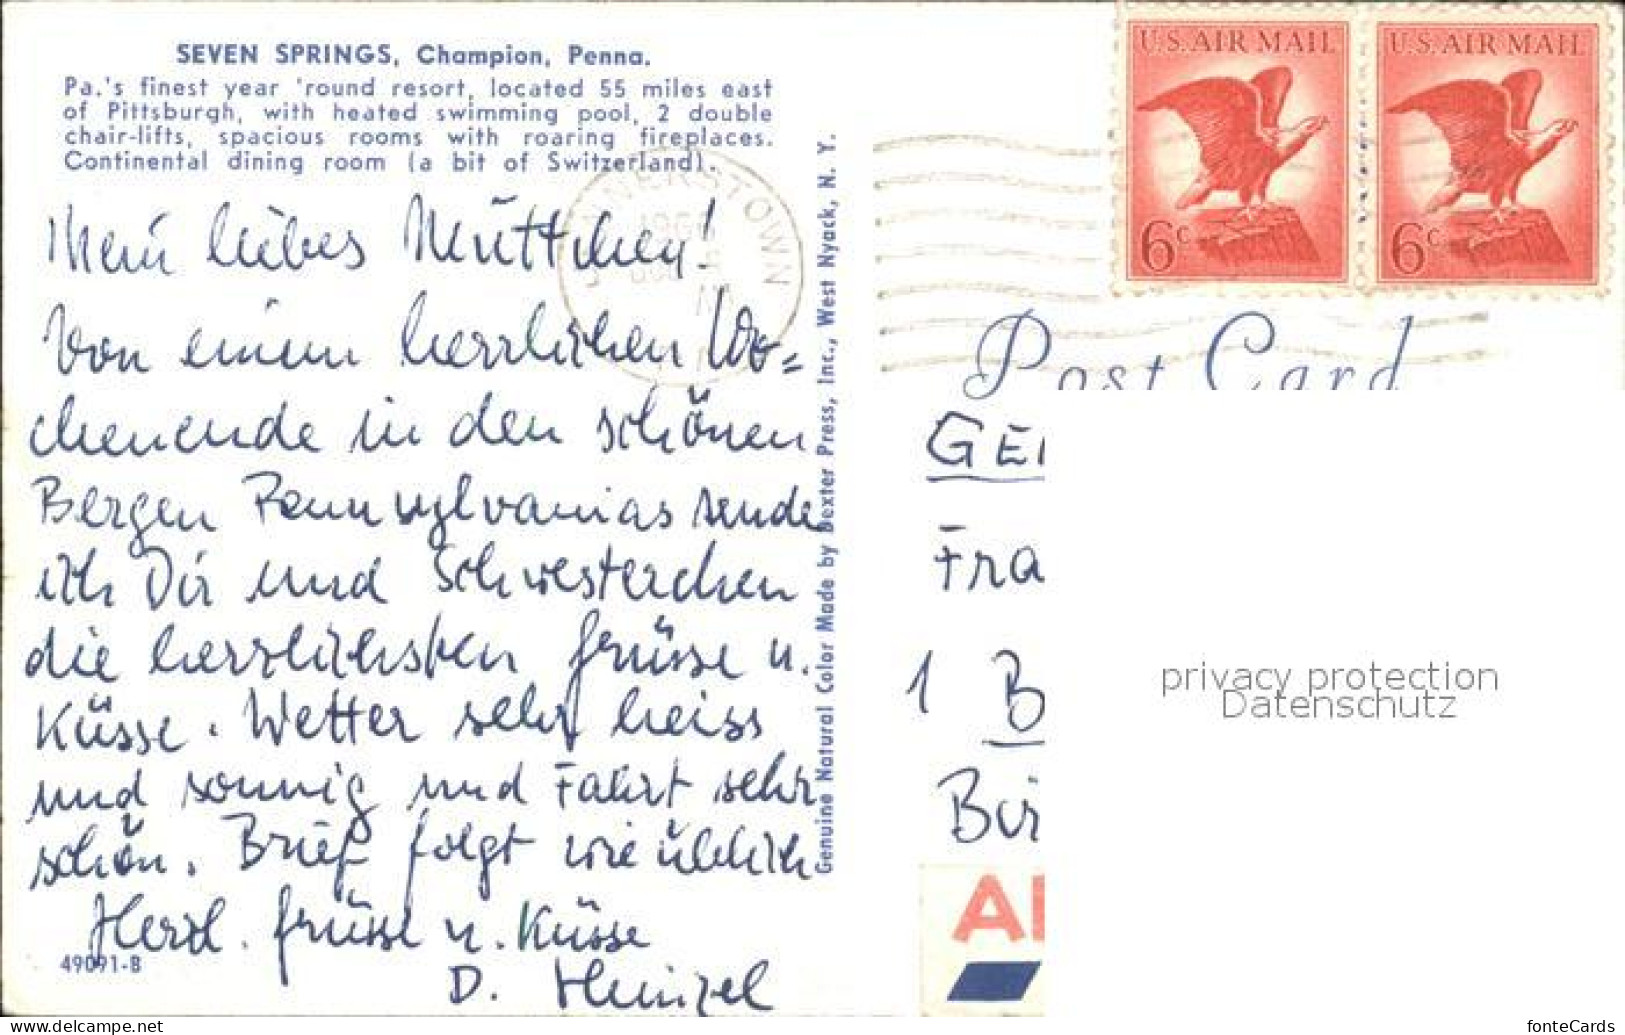 SEVEN SPRINGS, Champion, Penna.
Pa.'s finest year 'round resort, located 55 miles east
of Pittsburgh, with heated swimming pool, 2 double
chair-lifts, spacious rooms with roaring fireplaces.
Continental dining room (a bit of Switzerland).
Mein liebes Müttchen!
Von einem herrlichen Wo=
chenende in den schönen
Bergen Pennsylvanias sende
ich Dir und Schwesterchen
die herzlichsten Grüsse u.
Küsse. Wetter sehr heiss
und sonnig und Fahrt sehr
schön. Brief folgt wie üblich
Herzl. Grüsse u. Küsse
D. Heinzel
49091-B
Genuine Natural Color Made by Dexter Press, Inc., West Nyack, N. Y.
U.S. AIR MAIL
6c
U.S. AIR MAIL
6c
Post Card
GER
Fra
1 B
Bir
privacy protection
Datenschutz
AI
fonteCards
www.delcampe.net